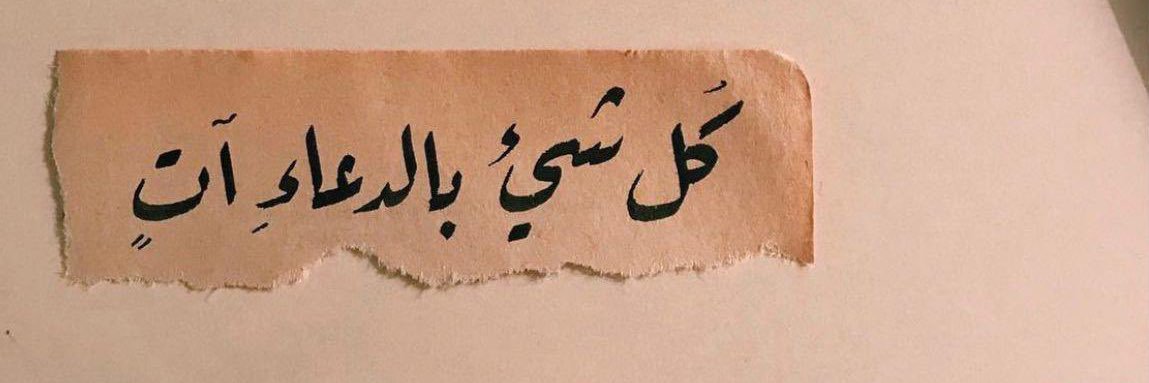 كُل شيئ بالدعاءِ آتٍ